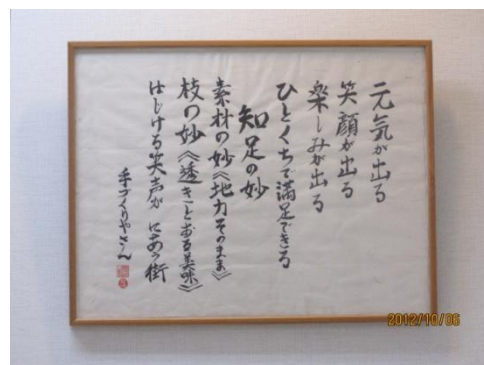 元気が出る
笑顔が出る
楽しみが出る
ひとくちで満足できる
知足の妙
素材の妙《地力そのまま》
枝の妙《透きとおる美味》
はじける笑声が にあう街
手づくりやさん
2012/10/06